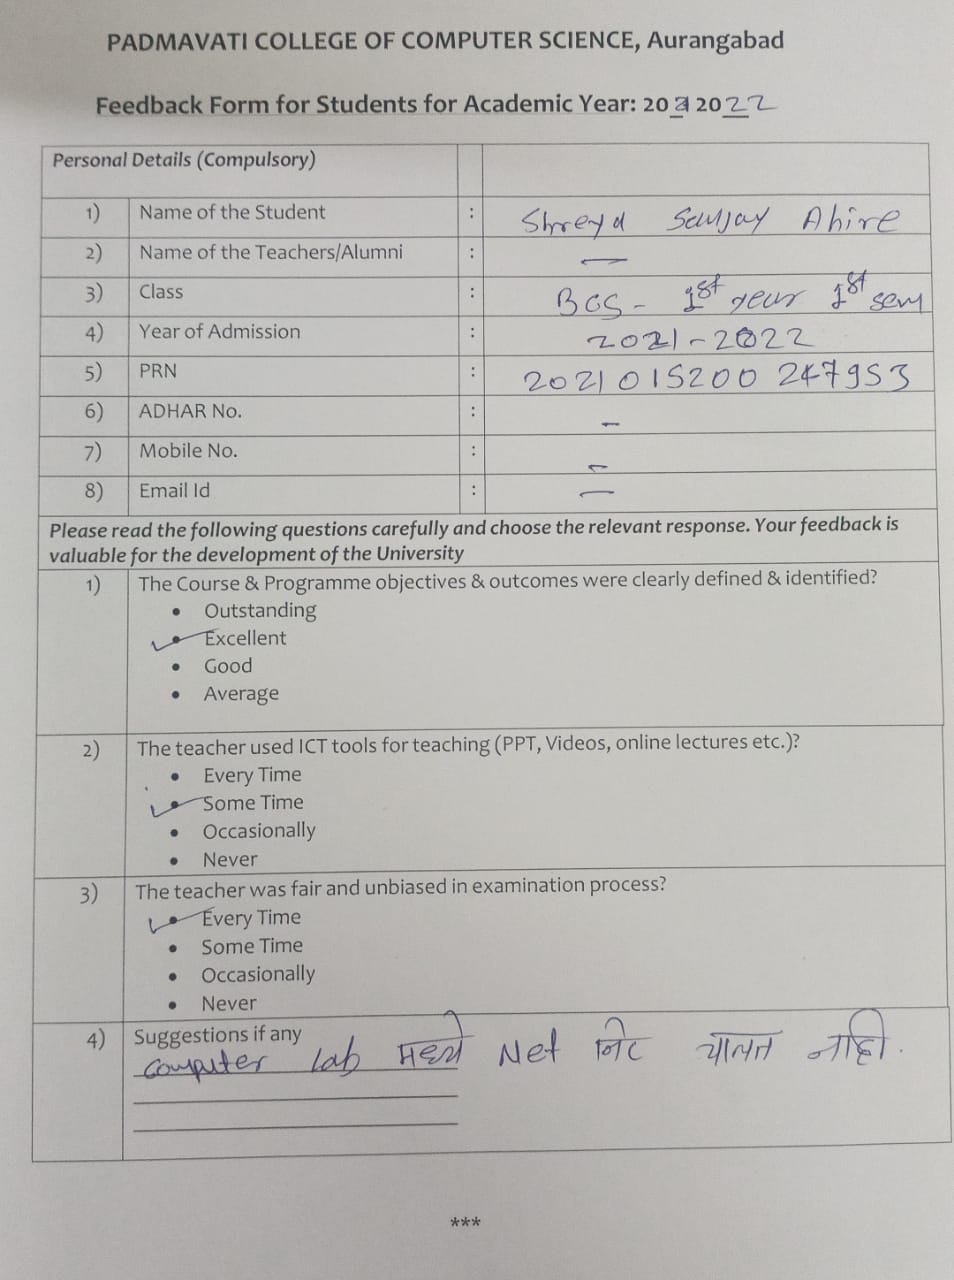 PADMAVATI COLLEGE OF COMPUTER SCIENCE, Aurangabad
Feedback Form for Students for Academic Year: 20 2022
Personal Details (Compulsory) :
1) Name of the Student : Shreya Sanjay Ahire
2) Name of the Teachers/Alumni : —
3) Class : BCS - 1st year 1st sem
4) Year of Admission : 2021-2022
5) PRN : 2021015200247953
6) ADHAR No. : –
7) Mobile No. : –
8) Email Id : —
Please read the following questions carefully and choose the relevant response. Your feedback is
valuable for the development of the University
1) The Course & Programme objectives & outcomes were clearly defined & identified?
• Outstanding
✓• Excellent
• Good
• Average
2) The teacher used ICT tools for teaching (PPT, Videos, online lectures etc.)?
• Every Time
✓• Some Time
• Occasionally
• Never
3) The teacher was fair and unbiased in examination process?
✓• Every Time
• Some Time
• Occasionally
• Never
4) Suggestions if any
computer lab मध्ये Net निट चालत नाही.
***